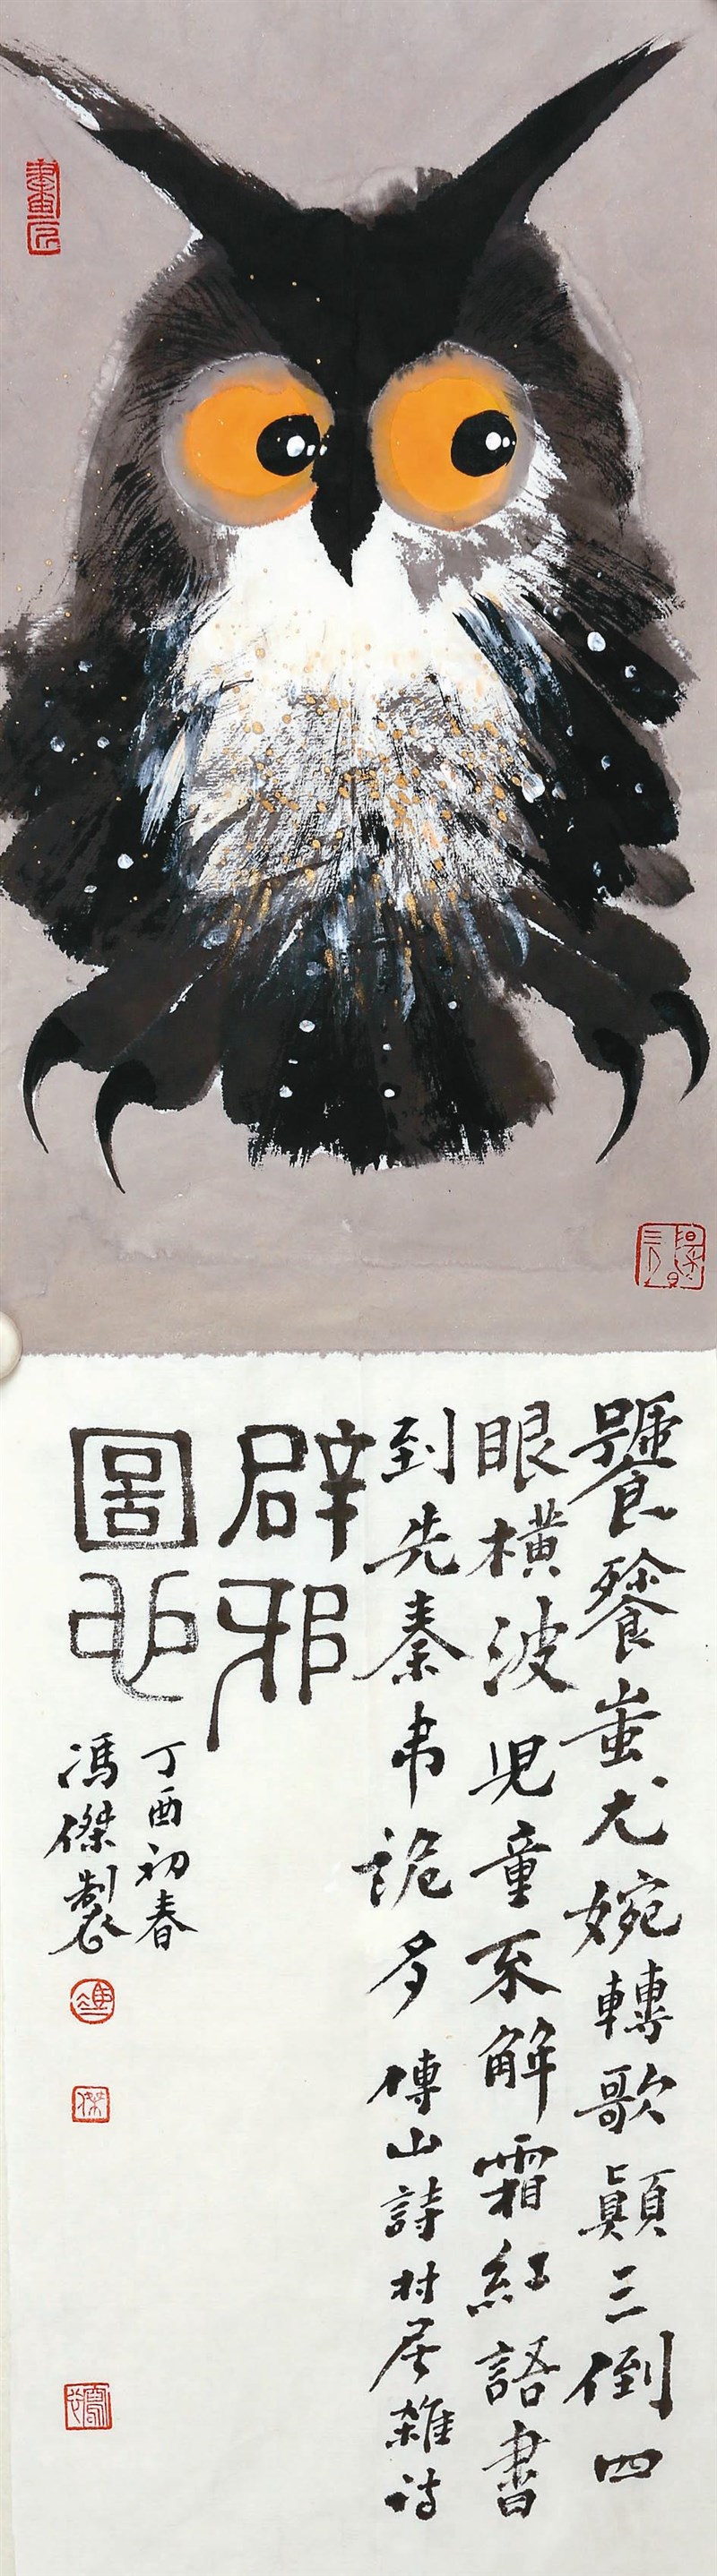 饕餮蚩尤婉轉歌顛三倒四
眼橫波児童不解霜紅語書
到先秦弔詭多傅山詩村居雜詩
辟邪
圖也
丁酉初春
馮傑製
馮
傑